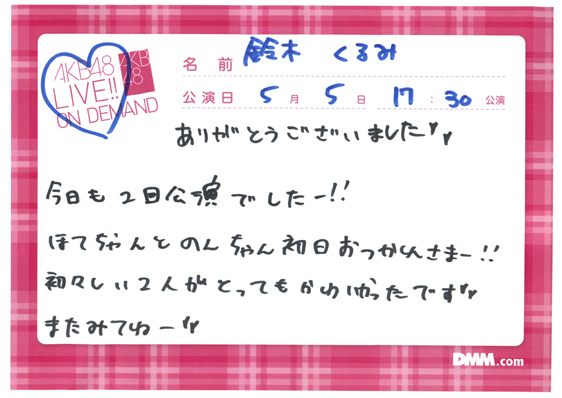 AKB48
LIVE!!
ON DEMAND
AKB
48
名前 鈴木 くるみ
公演日 5月 5日 17:30 公演
ありがとうございました♡♡
今日も2回公演でしたー!!
ほてちゃんとのんちゃん初日おつかれさまー!!
初々しい2人がとってもかわいかったです♡♡
またみてねー♡♡
DMM.com